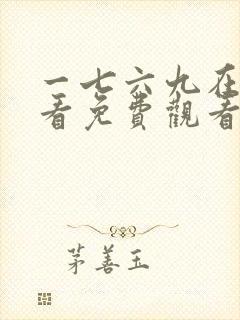 一七六九在
看免費觀看
茅善玉